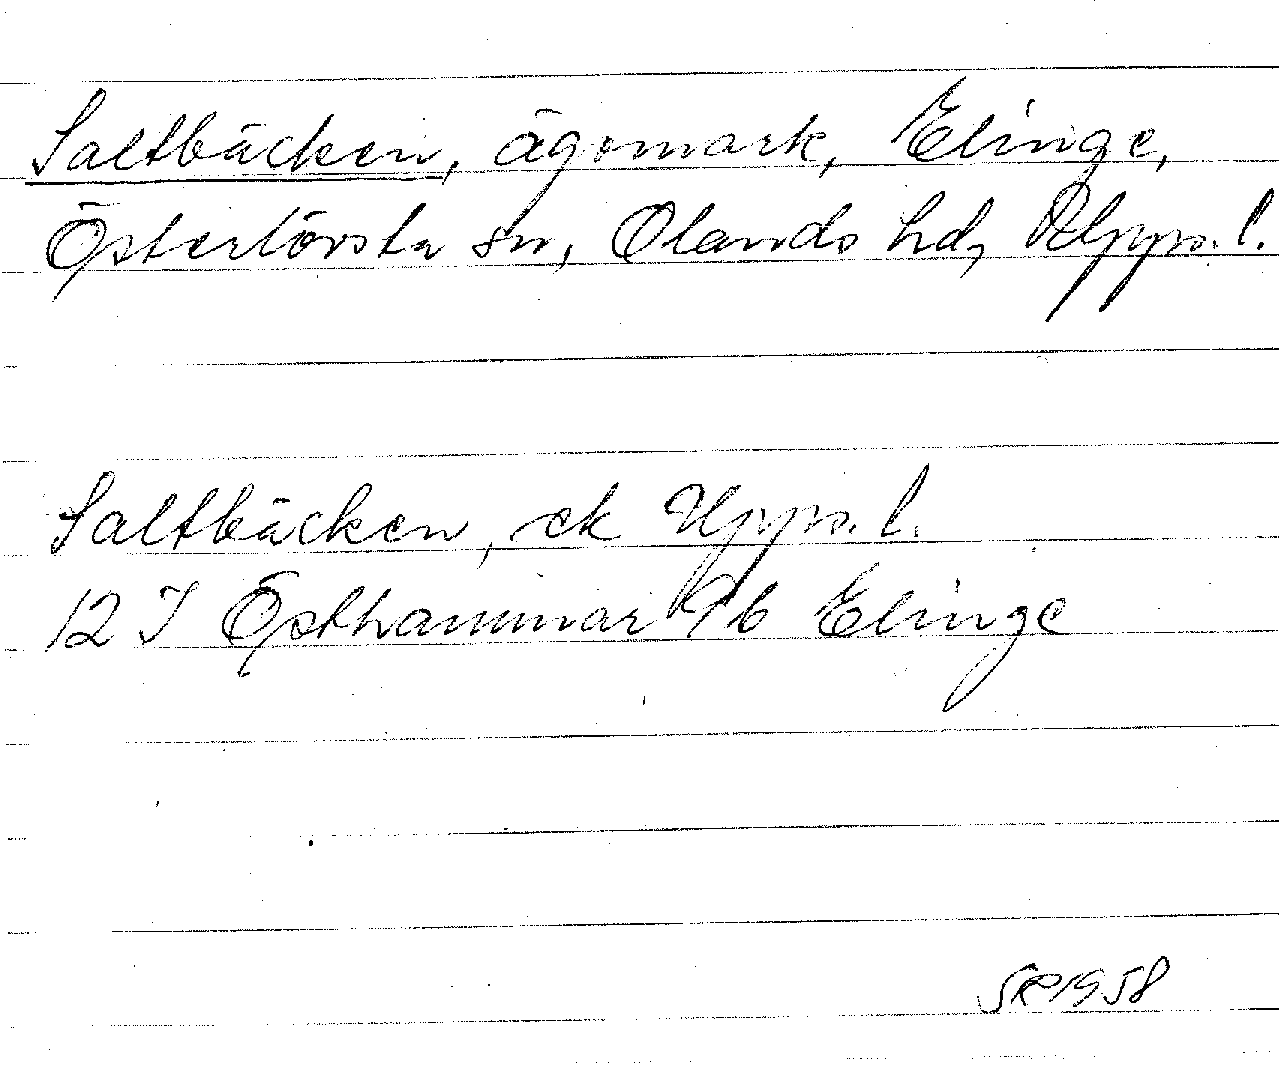 Saltbäcken, ägomark, Elinge,
Österlövsta sn, Olands hd, Upps. l.
Saltbäcken, ek Upps. l.
12 I Östhammar 9b Elinge
SR 1958